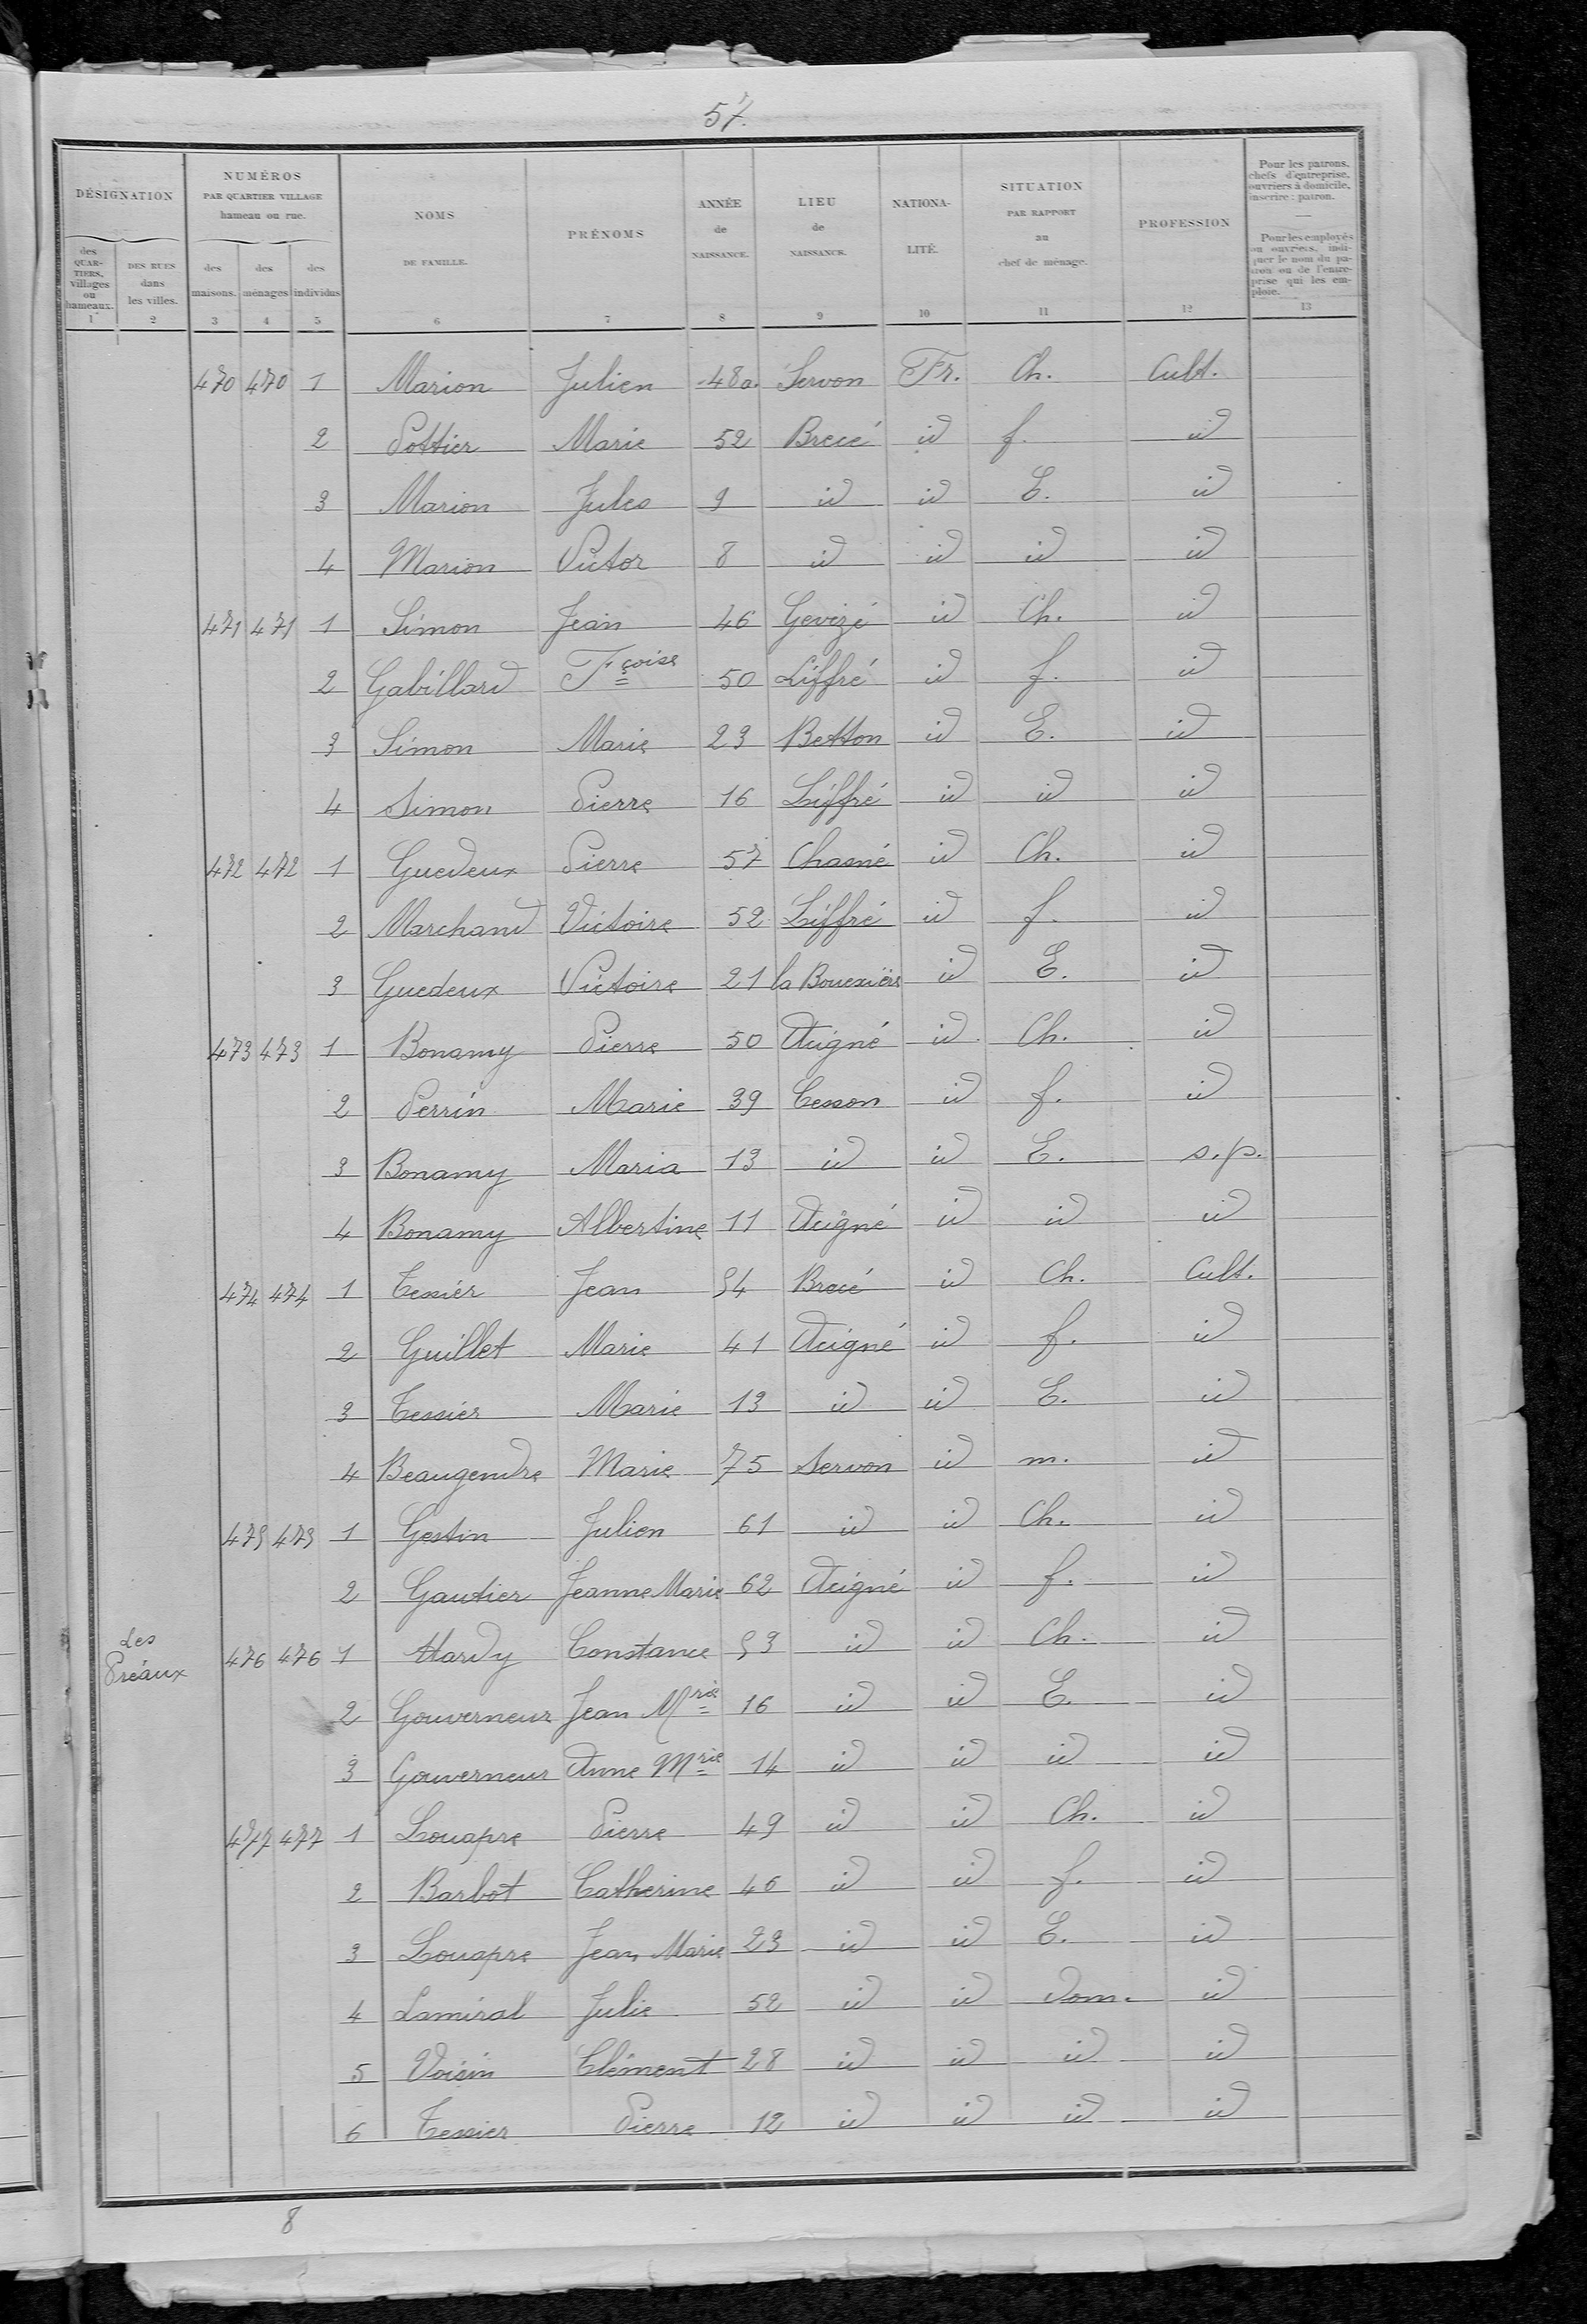 57.
DÉSIGNATION
NUMÉROS PAR QUARTIER VILLAGE hameau ou rue.
NOMS DE FAMILLE.
PRÉNOMS
ANNÉE de NAISSANCE.
LIEU de NAISSANCE.
NATIONA-LITÉ.
SITUATION PAR RAPPORT au chef de ménage.
PROFESSION
Pour les patrons, chefs d'entreprise, ouvriers à domicile, inscrire : patron.
Pour les employés ou ouvriers, indiquer le nom du patron ou de l'entreprise qui les emploie.
des QUARTIERS, villages ou hameaux.
DES RUES dans les villes.
des maisons.
des ménages
des individus
1 2 3 4 5 6 7 8 9 10 11 12 13
470 470 1 Marion Julien 48a. Servon Fr. Ch. Cult.
2 Pottier Marie 52 Brecé id f. id
3 Marion Jules 9 id id E. id
4 Marion Victor 8 id id id id
471 471 1 Simon Jean 46 Gevizé id Ch. id
2 Gabillard Fçoise 50 Liffré id f. id
3 Simon Marie 23 Betton id E. id
4 Simon Pierre 16 Liffré id id id
472 472 1 Guedeux Pierre 57 Chasné id Ch. id
2 Marchand Victoire 52 Liffré id f. id
3 Guedeux Victoire 21 la Bouexière id E. id
473 473 1 Bonamy Pierre 50 Acigné id Ch. id
2 Perrin Marie 39 Cesson id f. id
3 Bonamy Maria 13 id id E. s.p.
4 Bonamy Albertine 11 Acigné id id id
474 474 1 Tessier Jean 54 Brecé id Ch. Cult.
2 Guillet Marie 41 Acigné id f. id
3 Tessier Marie 13 id id E. id
4 Beaugendre Marie 75 Servon id m. id
475 475 1 Gestin Julien 61 id id Ch. id
2 Gautier Jeanne Marie 62 Acigné id f. id
Les Préaux 476 476 1 Hardy Constance 53 id id Ch. id
2 Gouverneur Jean Mrie 16 id id E. id
3 Gouverneur Anne Mrie 14 id id id id
477 477 1 Louapre Pierre 49 id id Ch. id
2 Barbot Catherine 46 id id f. id
3 Louapre Jean Marie 23 id id E. id
4 Lamiral Julie 52 id id dom. id
5 Voisin Clément 28 id id id id
6 Tessier Pierre 12 id id id id
8